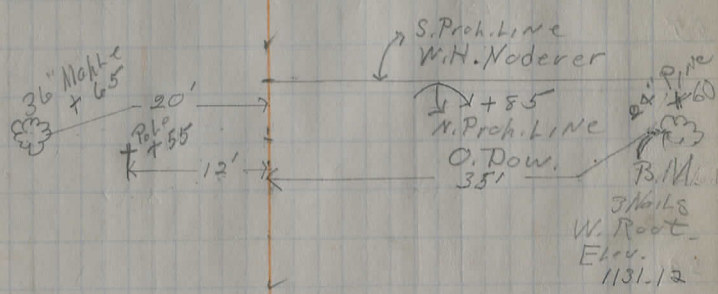 S. Proh. Line
W. H. Noderer
36" Maple
+ 65
20'
24" Pine
+ 60
+ 85
N. Proh. Line
O. Dow.
Pole
+ 55
12'
35'
B.M.
3 Nails
W. Root
Elev.
1131.12